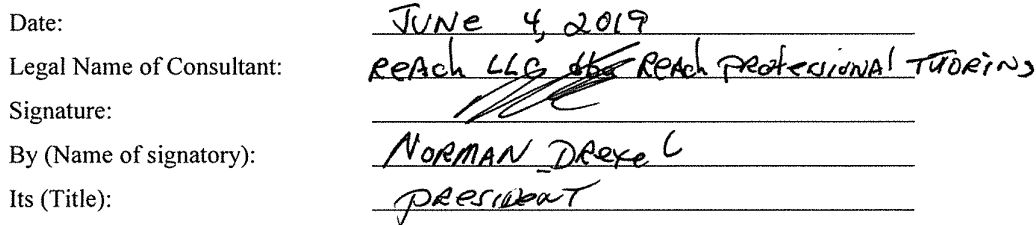 Date: JUNE 4, 2019
Legal Name of Consultant: REACh LLC dba REACh PROFESSIONAL TUTORING
Signature:
By (Name of signatory): NORMAN DREXEL
Its (Title): PRESIDENT